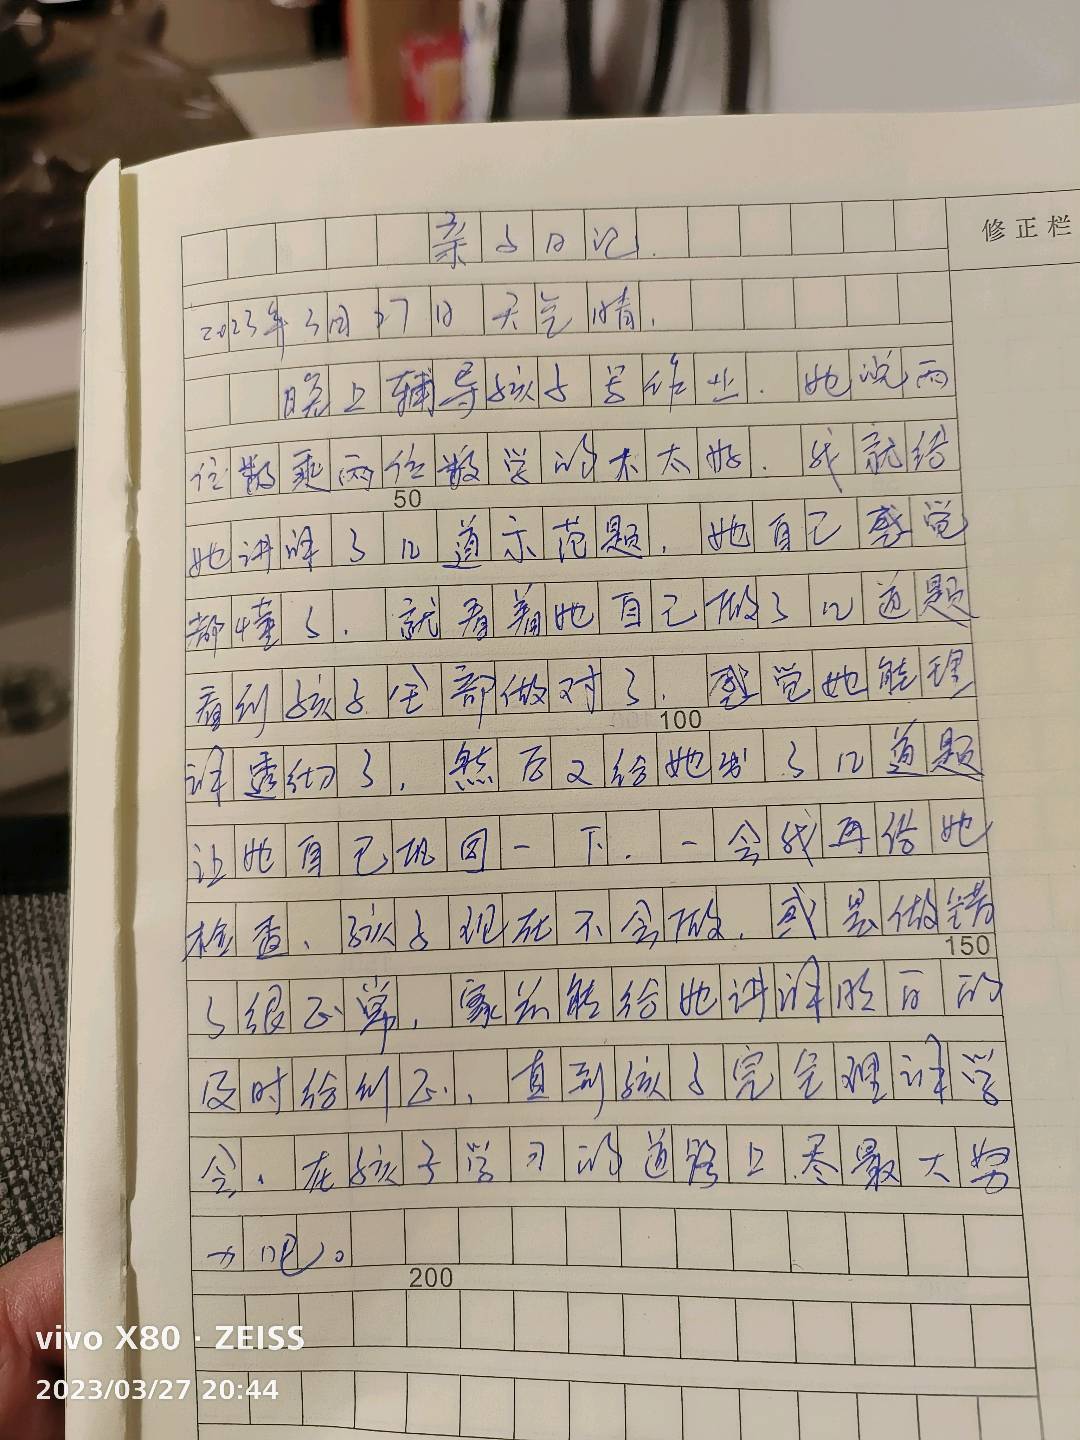 亲子日记.
修正栏
2023年3月27日 天气晴.
晚上辅导孩子写作业.她说两
位数乘两位数学的不太好.我就给
50
她讲解了几道示范题,她自己感觉
都懂了.就看着她自己做了几道题
看到孩子全部做对了.感觉她能理
100
解透彻了,然后又给她出了几道题
让她自己巩固一下.一会我再给她
检查、孩子现在不会做,或是做错
150
了很正常,家长能给她讲解明白的
及时给纠正,直到孩子完全理解学
会、在孩子学习的道路上尽最大努
力吧。
200
vivo X80 · ZEISS
2023/03/27 20:44